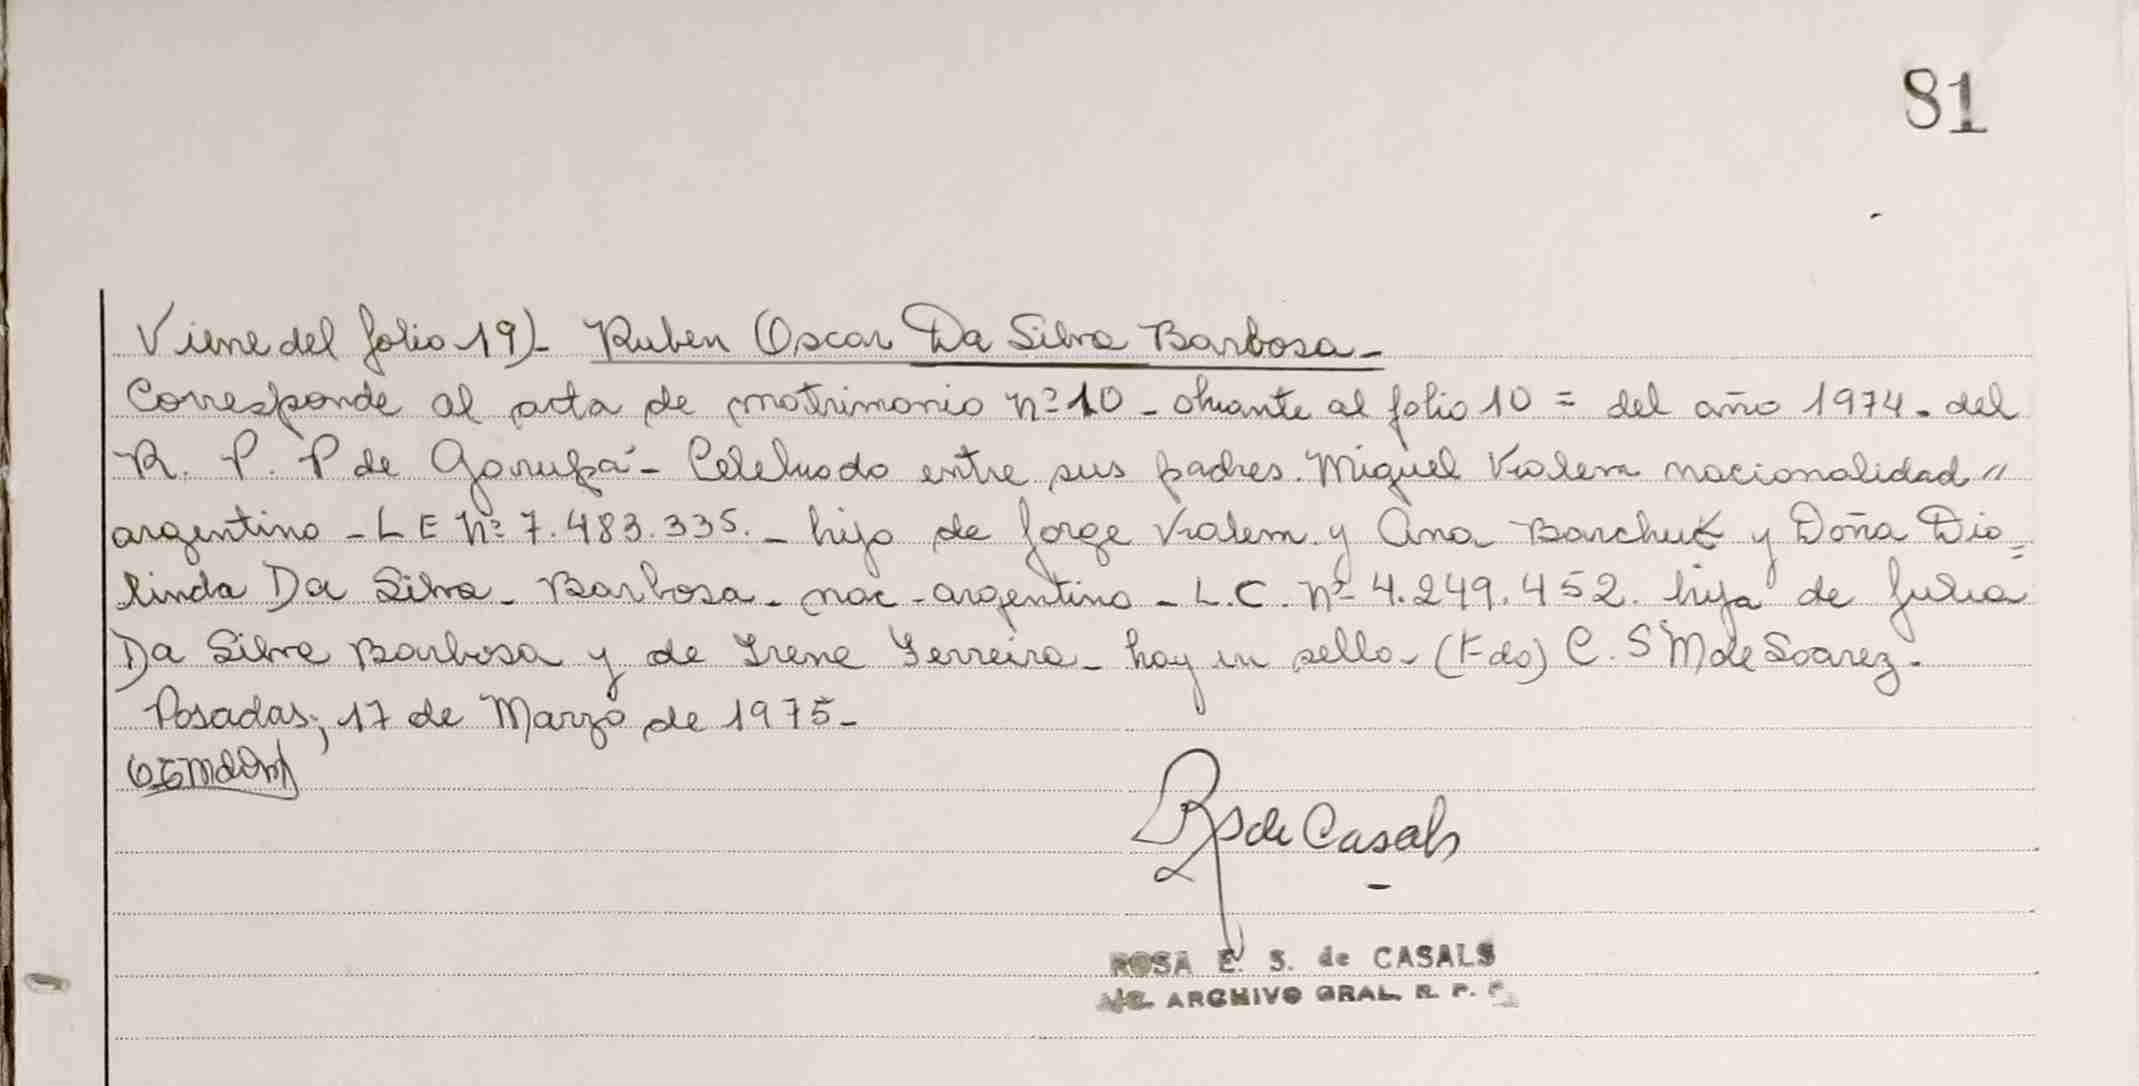 81
Viene del folio 19)- Ruben Oscar Da Silva Barbosa-
Corresponde al acta de matrimonio nº 10 - obrante al folio 10 = del año 1974. del
R. P. P de Garupá - Celebrado entre sus padres. Miguel Vialem nacionalidad "
argentino - L E Nº 7.483.335. - hijo de Jorge Vialem y Ana Barchuk y Doña Dio=
linda Da Silva - Barbosa - nac - argentina - L.C. Nº 4.249.452. hija de Julia
Da Silva Barbosa y de Irene Ferreira - hay un sello - (Fdo) C. S M de Soarez.
Posadas, 17 de Marzo de 1975-
RS de Casals
ROSA E. S. de CASALS
ARCHIVO GRAL. R. P. P.